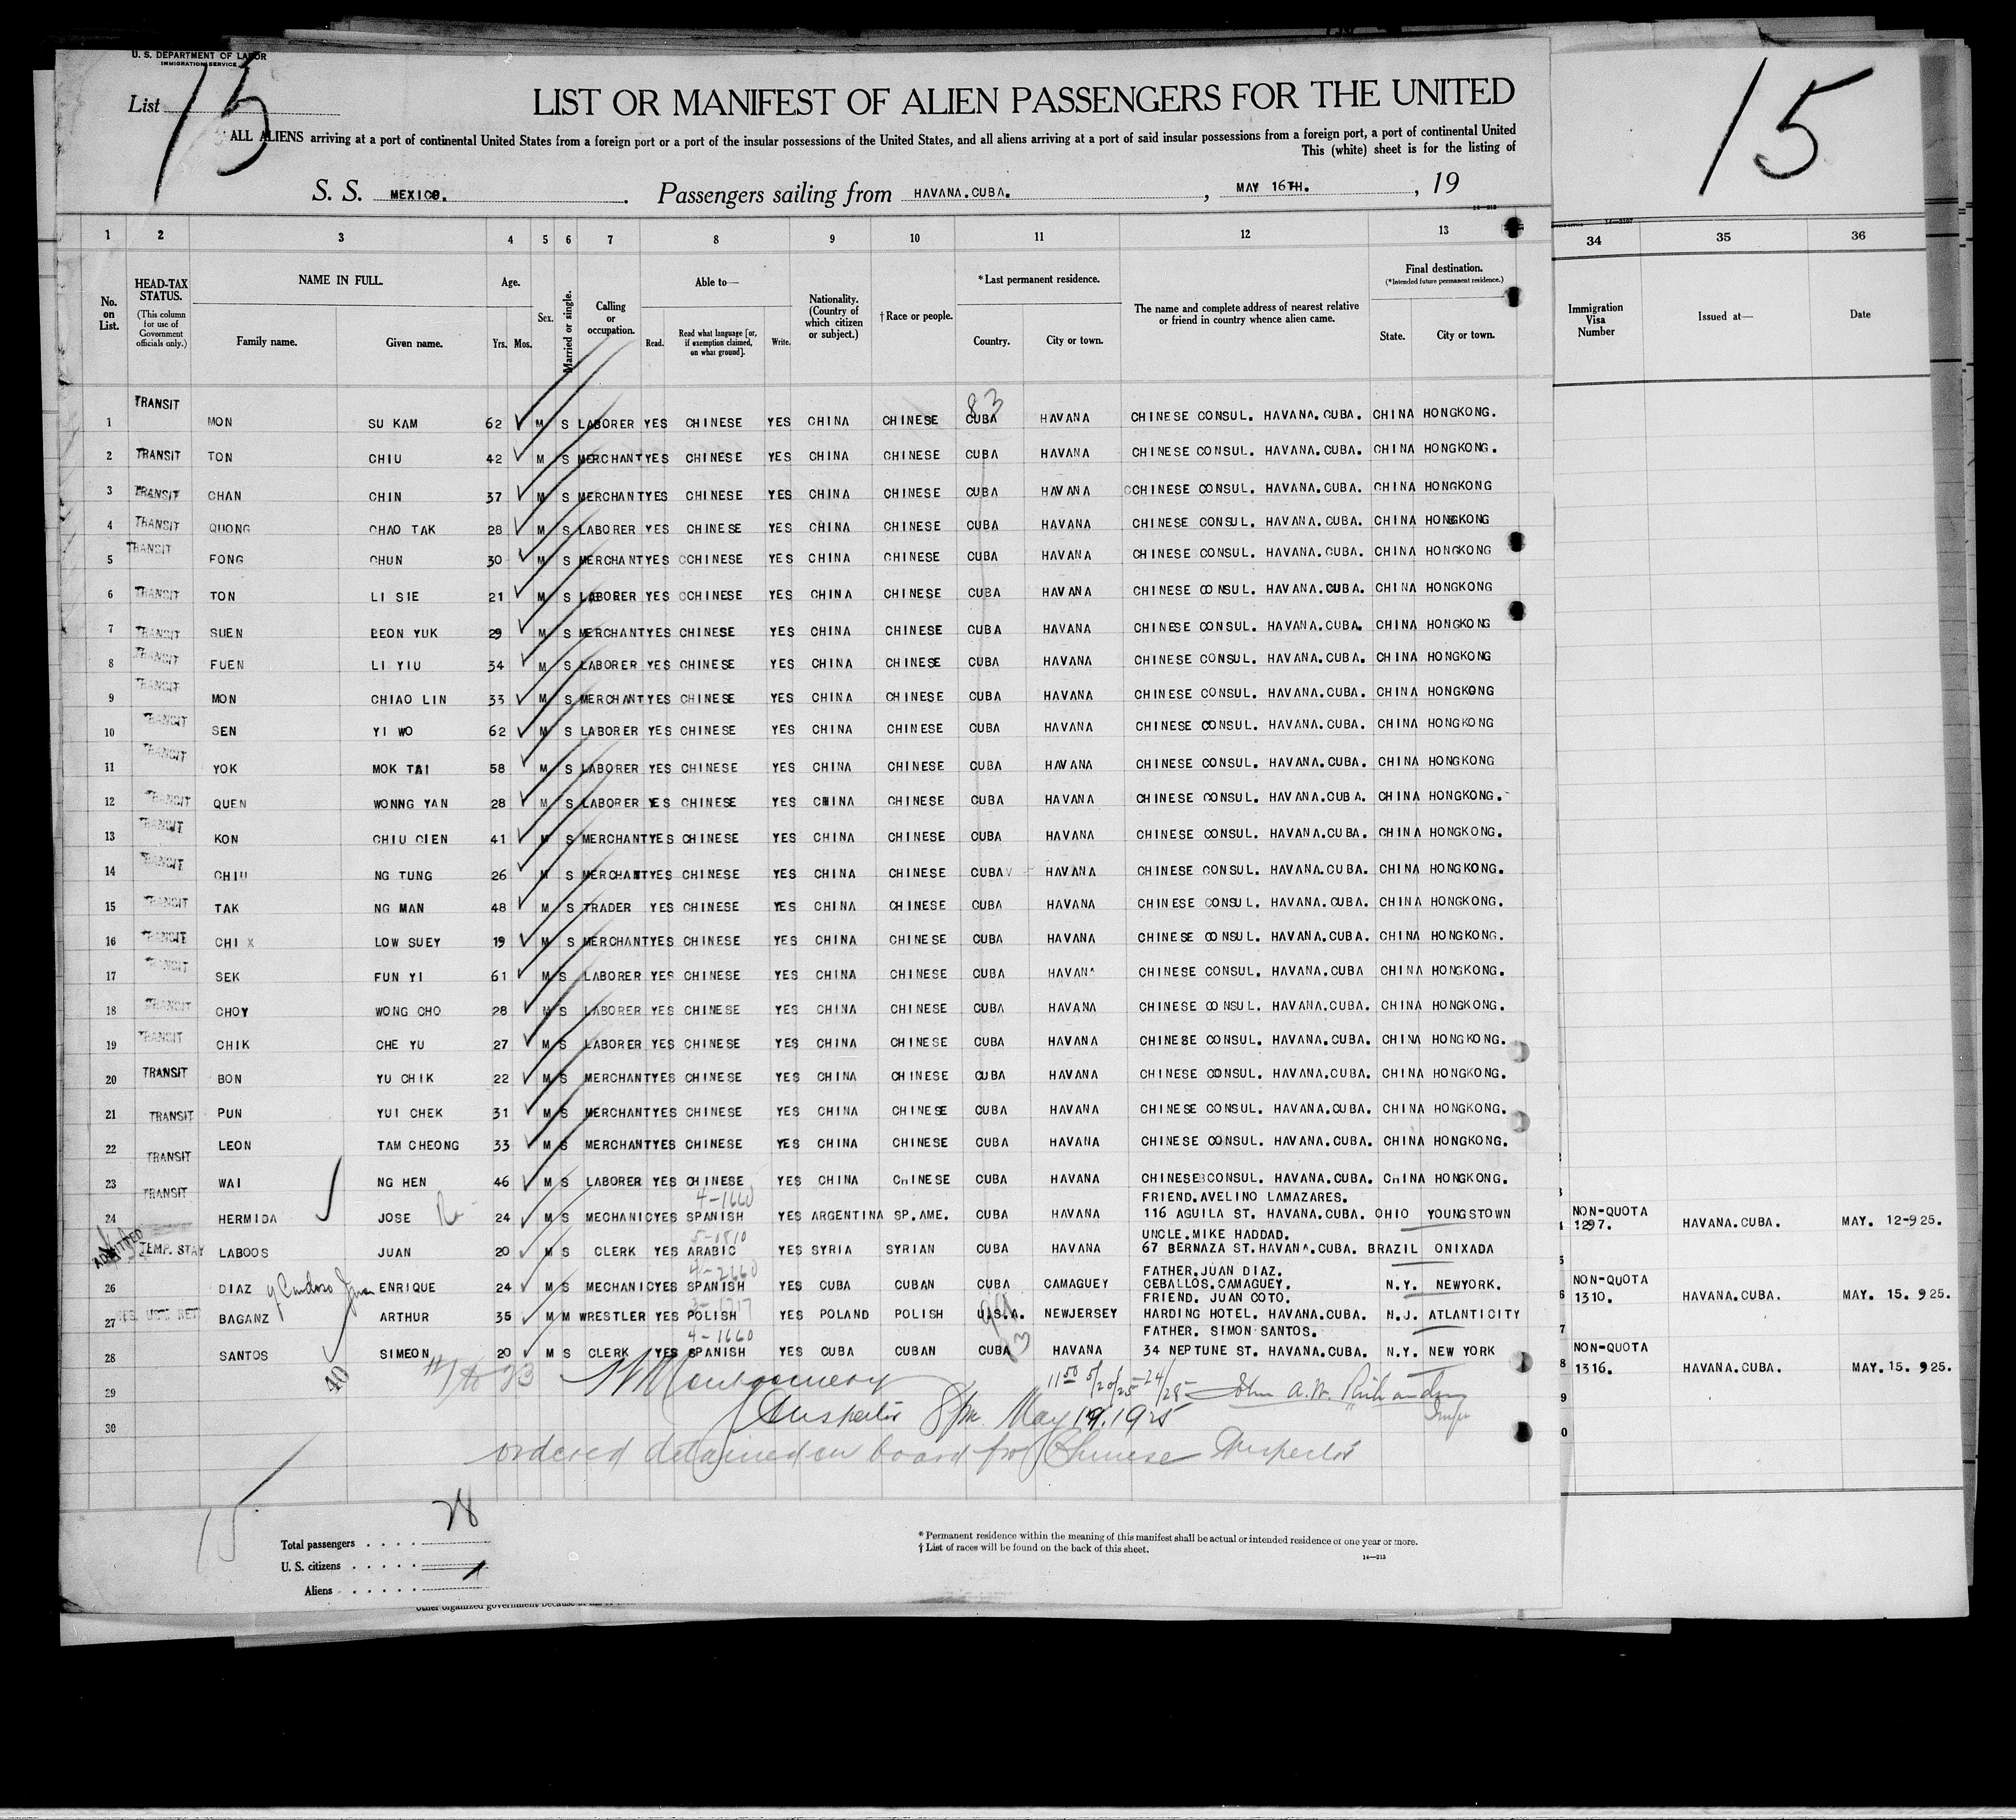 U. S. DEPARTMENT OF LABOR
IMMIGRATION SERVICE
List 15
LIST OR MANIFEST OF ALIEN PASSENGERS FOR THE UNITED
15
ALL ALIENS arriving at a port of continental United States from a foreign port or a port of the insular possessions of the United States, and all aliens arriving at a port of said insular possessions from a foreign port, a port of continental United
This (white) sheet is for the listing of
S. S. MEXICO. Passengers sailing from HAVANA.CUBA. , MAY 16TH. , 19
14—213
1 2 3 4 5 6 7 8 9 10 11 12 13 34 35 36
No. on List.
HEAD-TAX STATUS.
(This column for use of Government officials only.)
NAME IN FULL.
Family name. Given name.
Age.
Yrs. Mos.
Sex.
Married or single.
Calling or occupation.
Able to—
Read. Read what language [or, if exemption claimed, on what ground]. Write.
Nationality. (Country of which citizen or subject.)
†Race or people.
*Last permanent residence.
Country. City or town.
The name and complete address of nearest relative or friend in country whence alien came.
Final destination.
(*Intended future permanent residence.)
State. City or town.
Immigration Visa Number
Issued at—
Date
83
1 TRANSIT MON SU KAM 62 M S LABORER YES CHINESE YES CHINA CHINESE CUBA HAVANA CHINESE CONSUL. HAVANA.CUBA. CHINA HONGKONG.
2 TRANSIT TON CHIU 42 M S MERCHANT YES CHINESE YES CHINA CHINESE CUBA HAVANA CHINESE CONSUL. HAVANA.CUBA. CHINA HONGKONG.
3 TRANSIT CHAN CHIN 37 M S MERCHANT YES CHINESE YES CHINA CHINESE CUBA HAVANA CCHINESE CONSUL. HAVANA.CUBA. CHINA HONGKONG
4 TRANSIT QUONG CHAO TAK 28 M S LABORER YES CHINESE YES CHINA CHINESE CUBA HAVANA CHINESE CONSUL. HAVANA.CUBA. CHINA HONGKONG
5 TRANSIT FONG CHUN 30 M S MERCHANT YES CCHINESE YES CHINA CHINESE CUBA HAVANA CHINESE CONSUL. HAVANA.CUBA. CHINA HONGKONG
6 TRANSIT TON LI SIE 21 M S LABORER YES CCHINESE YES CHINA CHINESE CUBA HAVANA CHINESE CONSUL. HAVANA.CUBA. CHINA HONGKONG
7 TRANSIT SUEN LEON YUK 29 M S MERCHANT YES CHINESE YES CHINA CHINESE CUBA HAVANA CHINESE CONSUL. HAVANA.CUBA. CHINA HONGKONG
8 TRANSIT FUEN LI YIU 34 M S LABORER YES CHINESE YES CHINA CHINESE CUBA HAVANA CHINESE CONSUL. HAVANA.CUBA. CHINA HONGKONG
9 TRANSIT MON CHIAO LIN 33 M S MERCHANT YES CHINESE YES CHINA CHINESE CUBA HAVANA CHINESE CONSUL. HAVANA.CUBA. CHINA HONGKONG
10 TRANSIT SEN YI WO 62 M S LABORER YES CHINESE YES CHINA CHINESE CUBA HAVANA CHINESE CONSUL. HAVANA.CUBA. CHINA HONGKONG
11 TRANSIT YOK MOK TAI 58 M S LABORER YES CHINESE YES CHINA CHINESE CUBA HAVANA CHINESE CONSUL. HAVANA.CUBA. CHINA HONGKONG
12 TRANSIT QUEN WONNG YAN 28 M S LABORER YES CHINESE YES CHINA CHINESE CUBA HAVANA CHINESE CONSUL. HAVANA.CUBA. CHINA HONGKONG.
13 TRANSIT KON CHIU CIEN 41 M S MERCHANT YES CHINESE YES CHINA CHINESE CUBA HAVANA CHINESE CONSUL. HAVANA.CUBA. CHINA HONGKONG.
14 TRANSIT CHIU NG TUNG 26 M S MERCHANT YES CHINESE YES CHINA CHINESE CUBA HAVANA CHINESE CONSUL. HAVANA.CUBA. CHINA HONGKONG.
15 TRANSIT TAK NG MAN 48 M S TRADER YES CHINESE YES CHINA CHINESE CUBA HAVANA CHINESE CONSUL. HAVANA.CUBA. CHINA HONGKONG.
16 TRANSIT CHI X LOW SUEY 19 M S MERCHANT YES CHINESE YES CHINA CHINESE CUBA HAVANA CHINESE CONSUL. HAVANA.CUBA. CHINA HONGKONG.
17 TRANSIT SEK FUN YI 61 M S LABORER YES CHINESE YES CHINA CHINESE CUBA HAVANA CHINESE CONSUL. HAVANA.CUBA CHINA HONGKONG.
18 TRANSIT CHOY WONG CHO 28 M S LABORER YES CHINESE YES CHINA CHINESE CUBA HAVANA CHINESE CONSUL. HAVANA.CUBA. CHINA HONGKONG.
19 TRANSIT CHIK CHE YU 27 M S LABORER YES CHINESE YES CHINA CHINESE CUBA HAVANA CHINESE CONSUL. HAVANA.CUBA. CHINA HONGKONG.
20 TRANSIT BON YU CHIK 22 M S MERCHANT YES CHINESE YES CHINA CHINESE CUBA HAVANA CHINESE CONSUL. HAVANA.CUBA. CHINA HONGKONG.
21 TRANSIT PUN YUI CHEK 31 M S MERCHANT YES CHINESE YES CHINA CHINESE CUBA HAVANA CHINESE CONSUL. HAVANA.CUBA. CHINA HONGKONG.
22 TRANSIT LEON TAM CHEONG 33 M S MERCHANT YES CHINESE YES CHINA CHINESE CUBA HAVANA CHINESE CONSUL. HAVANA.CUBA. CHINA HONGKONG.
23 TRANSIT WAI NG HEN 46 M S LABORER YES CHINESE YES CHINA CHINESE CUBA HAVANA CHINESE CONSUL. HAVANA.CUBA. CHINA HONGKONG.
4-1660 FRIEND.AVELINO LAMAZARES.
24 HERMIDA JOSE 24 M S MECHANIC YES SPANISH YES ARGENTINA SP.AME. CUBA HAVANA 116 AGUILA ST. HAVANA.CUBA. OHIO YOUNGSTOWN NON-QUOTA 1297. HAVANA.CUBA. MAY. 12-925.
5-1810 UNCLE.MIKE HADDAD.
ADMITTED TEMP. STAY LABOOS JUAN 20 M S CLERK YES ARABIC YES SYRIA SYRIAN CUBA HAVANA 67 BERNAZA ST.HAVANA.CUBA. BRAZIL ONIXADA
4-2660 FATHER.JUAN DIAZ.
26 DIAZ y Cardoso Juan ENRIQUE 24 M S MECHANIC YES SPANISH YES CUBA CUBAN CUBA CAMAGUEY CEBALLOS.CAMAGUEY. N.Y. NEWYORK. NON-QUOTA 1310. HAVANA.CUBA. MAY. 15. 925.
FRIEND. JUAN COTO.
27 BAGANZ ARTHUR 35 M M WRESTLER YES POLISH YES POLAND POLISH U.S.A. NEWJERSEY HARDING HOTEL. HAVANA.CUBA. N.J. ATLANTICITY
4-1660 FATHER. SIMON SANTOS.
28 SANTOS SIMEON 20 M S CLERK YES SPANISH YES CUBA CUBAN CUBA HAVANA 34 NEPTUNE ST. HAVANA.CUBA. N.Y. NEW YORK NON-QUOTA 1316. HAVANA.CUBA. MAY.15. 925.
40 #1 to 23 Montgomery 11 50 5/20/25 - 24/28 John A.W. Richardson
29
Inspector 8 pm May 19, 1925
30
ordered detained on board for Chinese Inspector
15
28
Total passengers
U. S. citizens
Aliens
* Permanent residence within the meaning of this manifest shall be actual or intended residence of one year or more.
† List of races will be found on the back of this sheet.
14—213